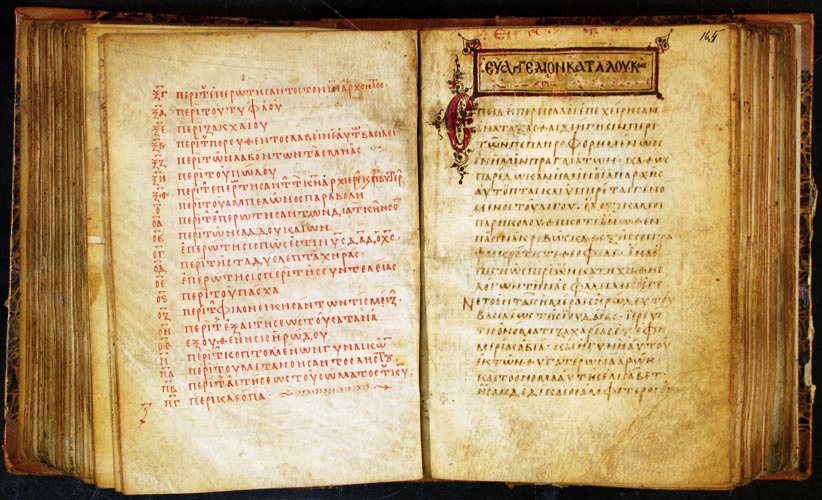 ξγ περι τ επερωτησαντος τον ιν αρχοντος
ξδ περι του τυφλου
ξε περι ζακχαιου
ξς περι τ πορευθεντος λαβειν εαυτ βασιλει
ξζ περι των λαβοντων τας μνας
ξη περι του πωλου
ξθ περι τ επερωτησαντ τ κν αρχιερε κ πρεσβυτερ
ο περι του αμπελωνος παραβολη
οα περι τ επερωτησαντων δια τ κηνσον
οβ περι των σαδδουκαιων
ογ επερωτησις πως εστιν υς δαδ ο χς
οδ περι της τα δυο λεπτα χηρας
οε επερωτησις περι της συντελειας
ος περι του πασχα
οζ περι τ φιλονεικησαντων τις μειζ
οη περι τ εξαιτησεως του σατανα
οθ εξουθενησις ηρωδου
π περι τ κοπτομενων γυναικω
πα περι του μετανοησαντος ληστου
πβ περι τ αιτησεως του σωματος τ κυ
πγ περι κλεοπα
165
ευαγγελιον κατα λουκαν
επειδηπερ πολλοι επεχειρησαν
αναταξασθαι διηγησιν περι
των πεπληροφορημενων
εν ημιν πραγματων· καθως
παρεδωσαν ημιν οι απ αρχης
αυτοπται και υπηρεται γενο
μενοι του λογου· εδοξε καμοι
παρηκολουθηκοτι ανωθεν
πασιν ακριβως καθεξης σοι γρα
ψαι κρατιστε θεοφιλε· ινα ε
πιγνως περι ων κατηχηθης
λογων την ασφαλειαν· εγε
νετο εν ταις ημεραις ηρωδου του
βασιλεως της ιουδαιας· ιερευς
τις ονοματι ζαχαριας εξ εφη
μεριας αβια· και η γυνη αυτου
εκ των θυγατερων ααρων
και το ονομα αυτης ελισαβετ·
ησαν δε δικαιοι αμφοτεροι